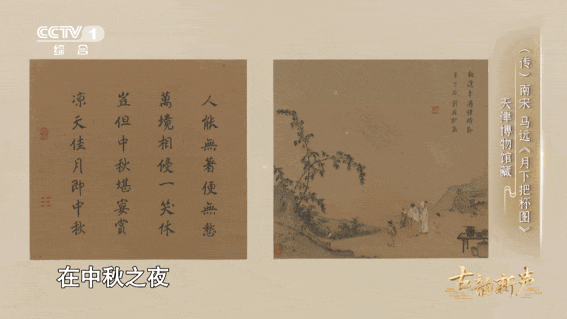 CCTV 1
综合
人能無著便無愁
萬境相侵一笑休
豈但中秋堪宴賞
凉天佳月即中秋
（传）南宋 马远《月下把杯图》
天津博物馆藏
在中秋之夜
古韵新声